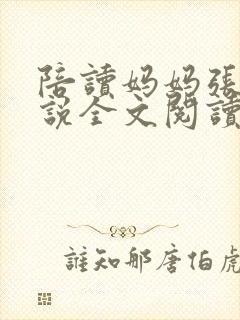 陪讀妈妈張
說全文閱讀
誰知那唐伯虎